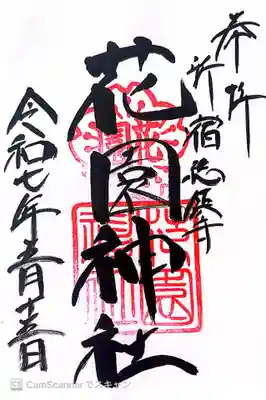 奉拝
新宿総鎮守
花園神社
令和七年 月 日
CS CamScannerでスキャン